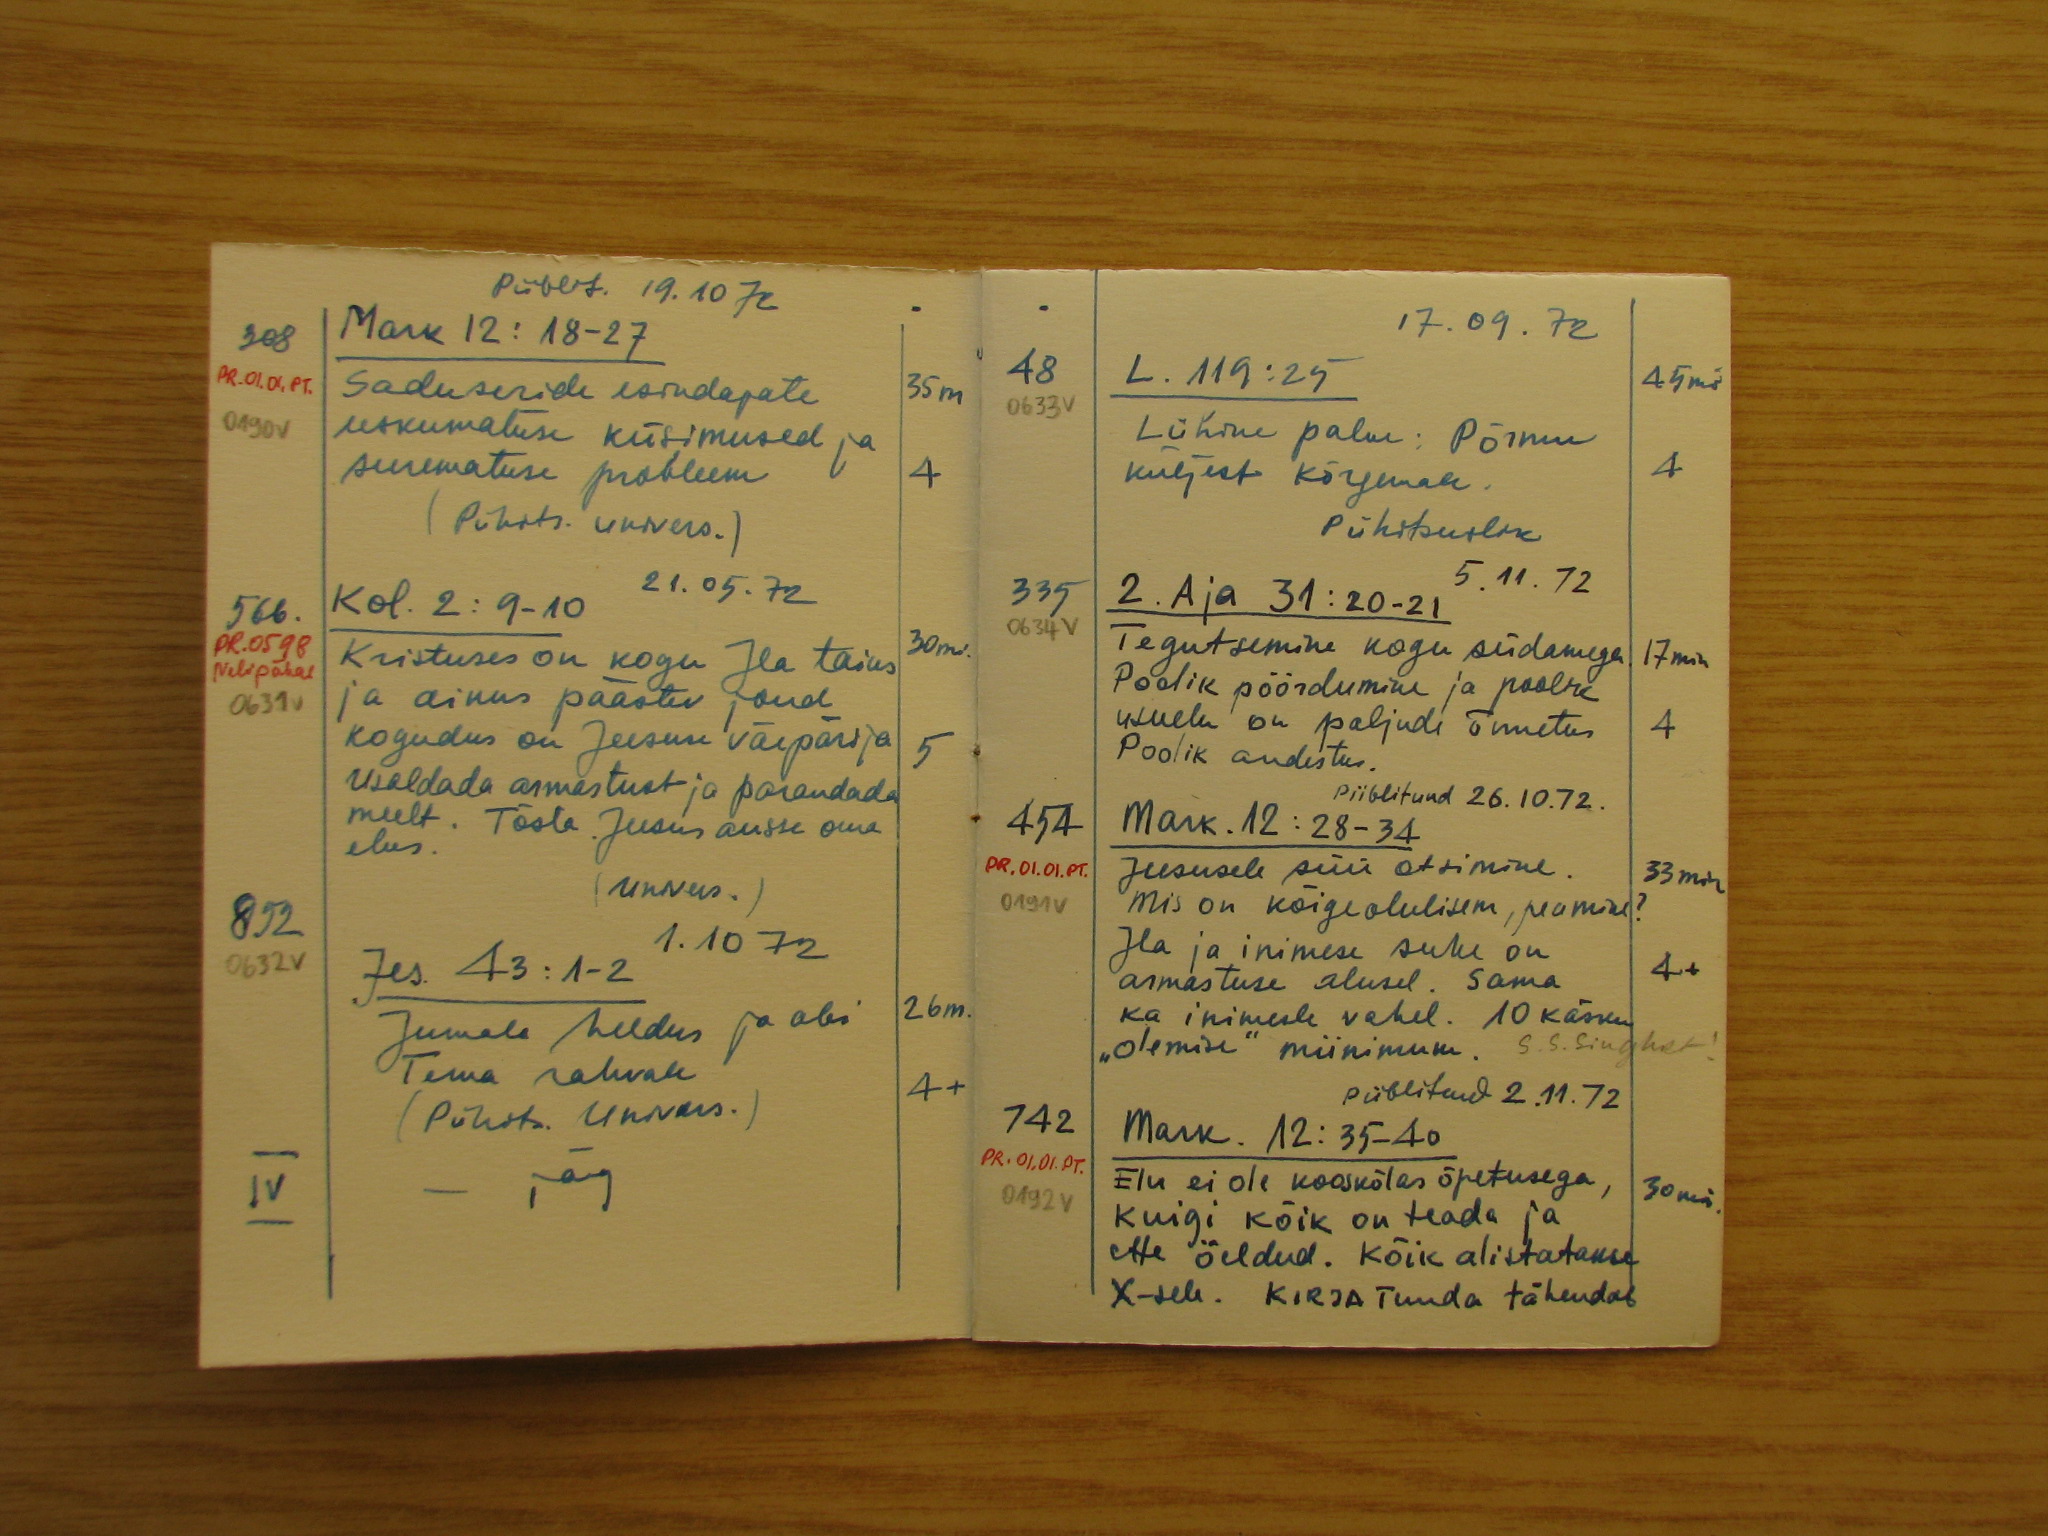 Piiblit. 19.10 72
308 Mark 12: 18-27
PR.01.01.PT. Saduseride esindajate 35m
0190V uskumatuse küsimused ja
suremaltuse probleem 4
(Pühits. univers.)
21.05.72
566. Kol. 2: 9-10
PR.0598 Kristuses on kogu Jla täius 30mi.
Nelipühad ja ainus päästev jõud
0631V kogudus on Jeesuse väepärija 5
Usaldada armastust ja parandada
meelt. Tõsta Jeesus ausse oma
elus.
(Univers.)
1.10 72
852 Jes. 43:1-2
0632V Jumala heldus ja abi 26m.
Tema rahvale 4+
(Pühits. Univers.)
IV — järg
17.09.72
48 L. 119:25 45mi
0633V Lühine palve: Põrmu
küljest kõrgemale. 4
Pühitsuslik
5.11.72
335 2. Aja 31:20-21
0634V Tegutsemine kogu südamega. 17min
Poolik pöördumine ja poolik
usuelu on paljude õnnetus 4
Poolik andestus.
Piiblitund 26.10.72.
454 Mark. 12:28-34
PR.01.01.PT. Jeesusele süü otsimine. 33min
0191V Mis on kõige olulisem, peamine?
Jla ja inimese suhe on
armastuse alusel. Sama 4+
ka inimeste vahel. 10 käsku
„olemise" miinimum. S.S.
Piiblitund 2.11.72
742 Mark. 12:35-40
PR.01.01.PT. Elu ei ole kooskõlas õpetusega, 30mi.
0192V kuigi kõik on teada ja
ette öeldud. Kõik alistatakse
X-sele. KIRJA Tunda tähendab